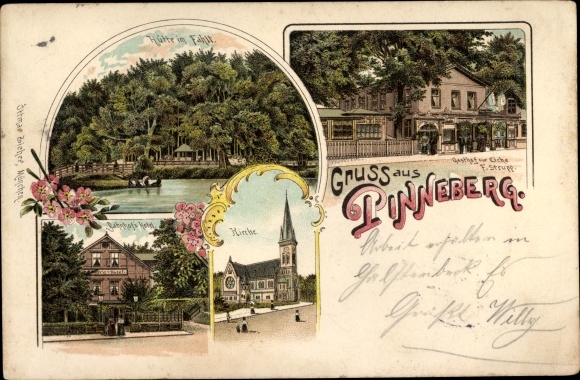 Hütte im Fahlt.
Gasthof zur Eiche
F. Strupp.
GRUSS aus
PINNEBERG.
Ottmar Zieher, München.
Bahnhofs Hotel
Kirche
Arbeit erhalten in
Halstenbeck Es
Grüßt Willy